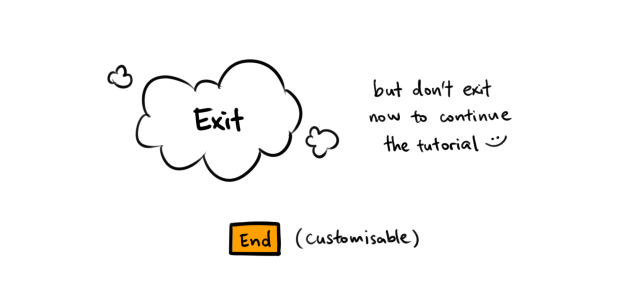 Exit
but don't exit
now to continue
the tutorial
End (customisable)